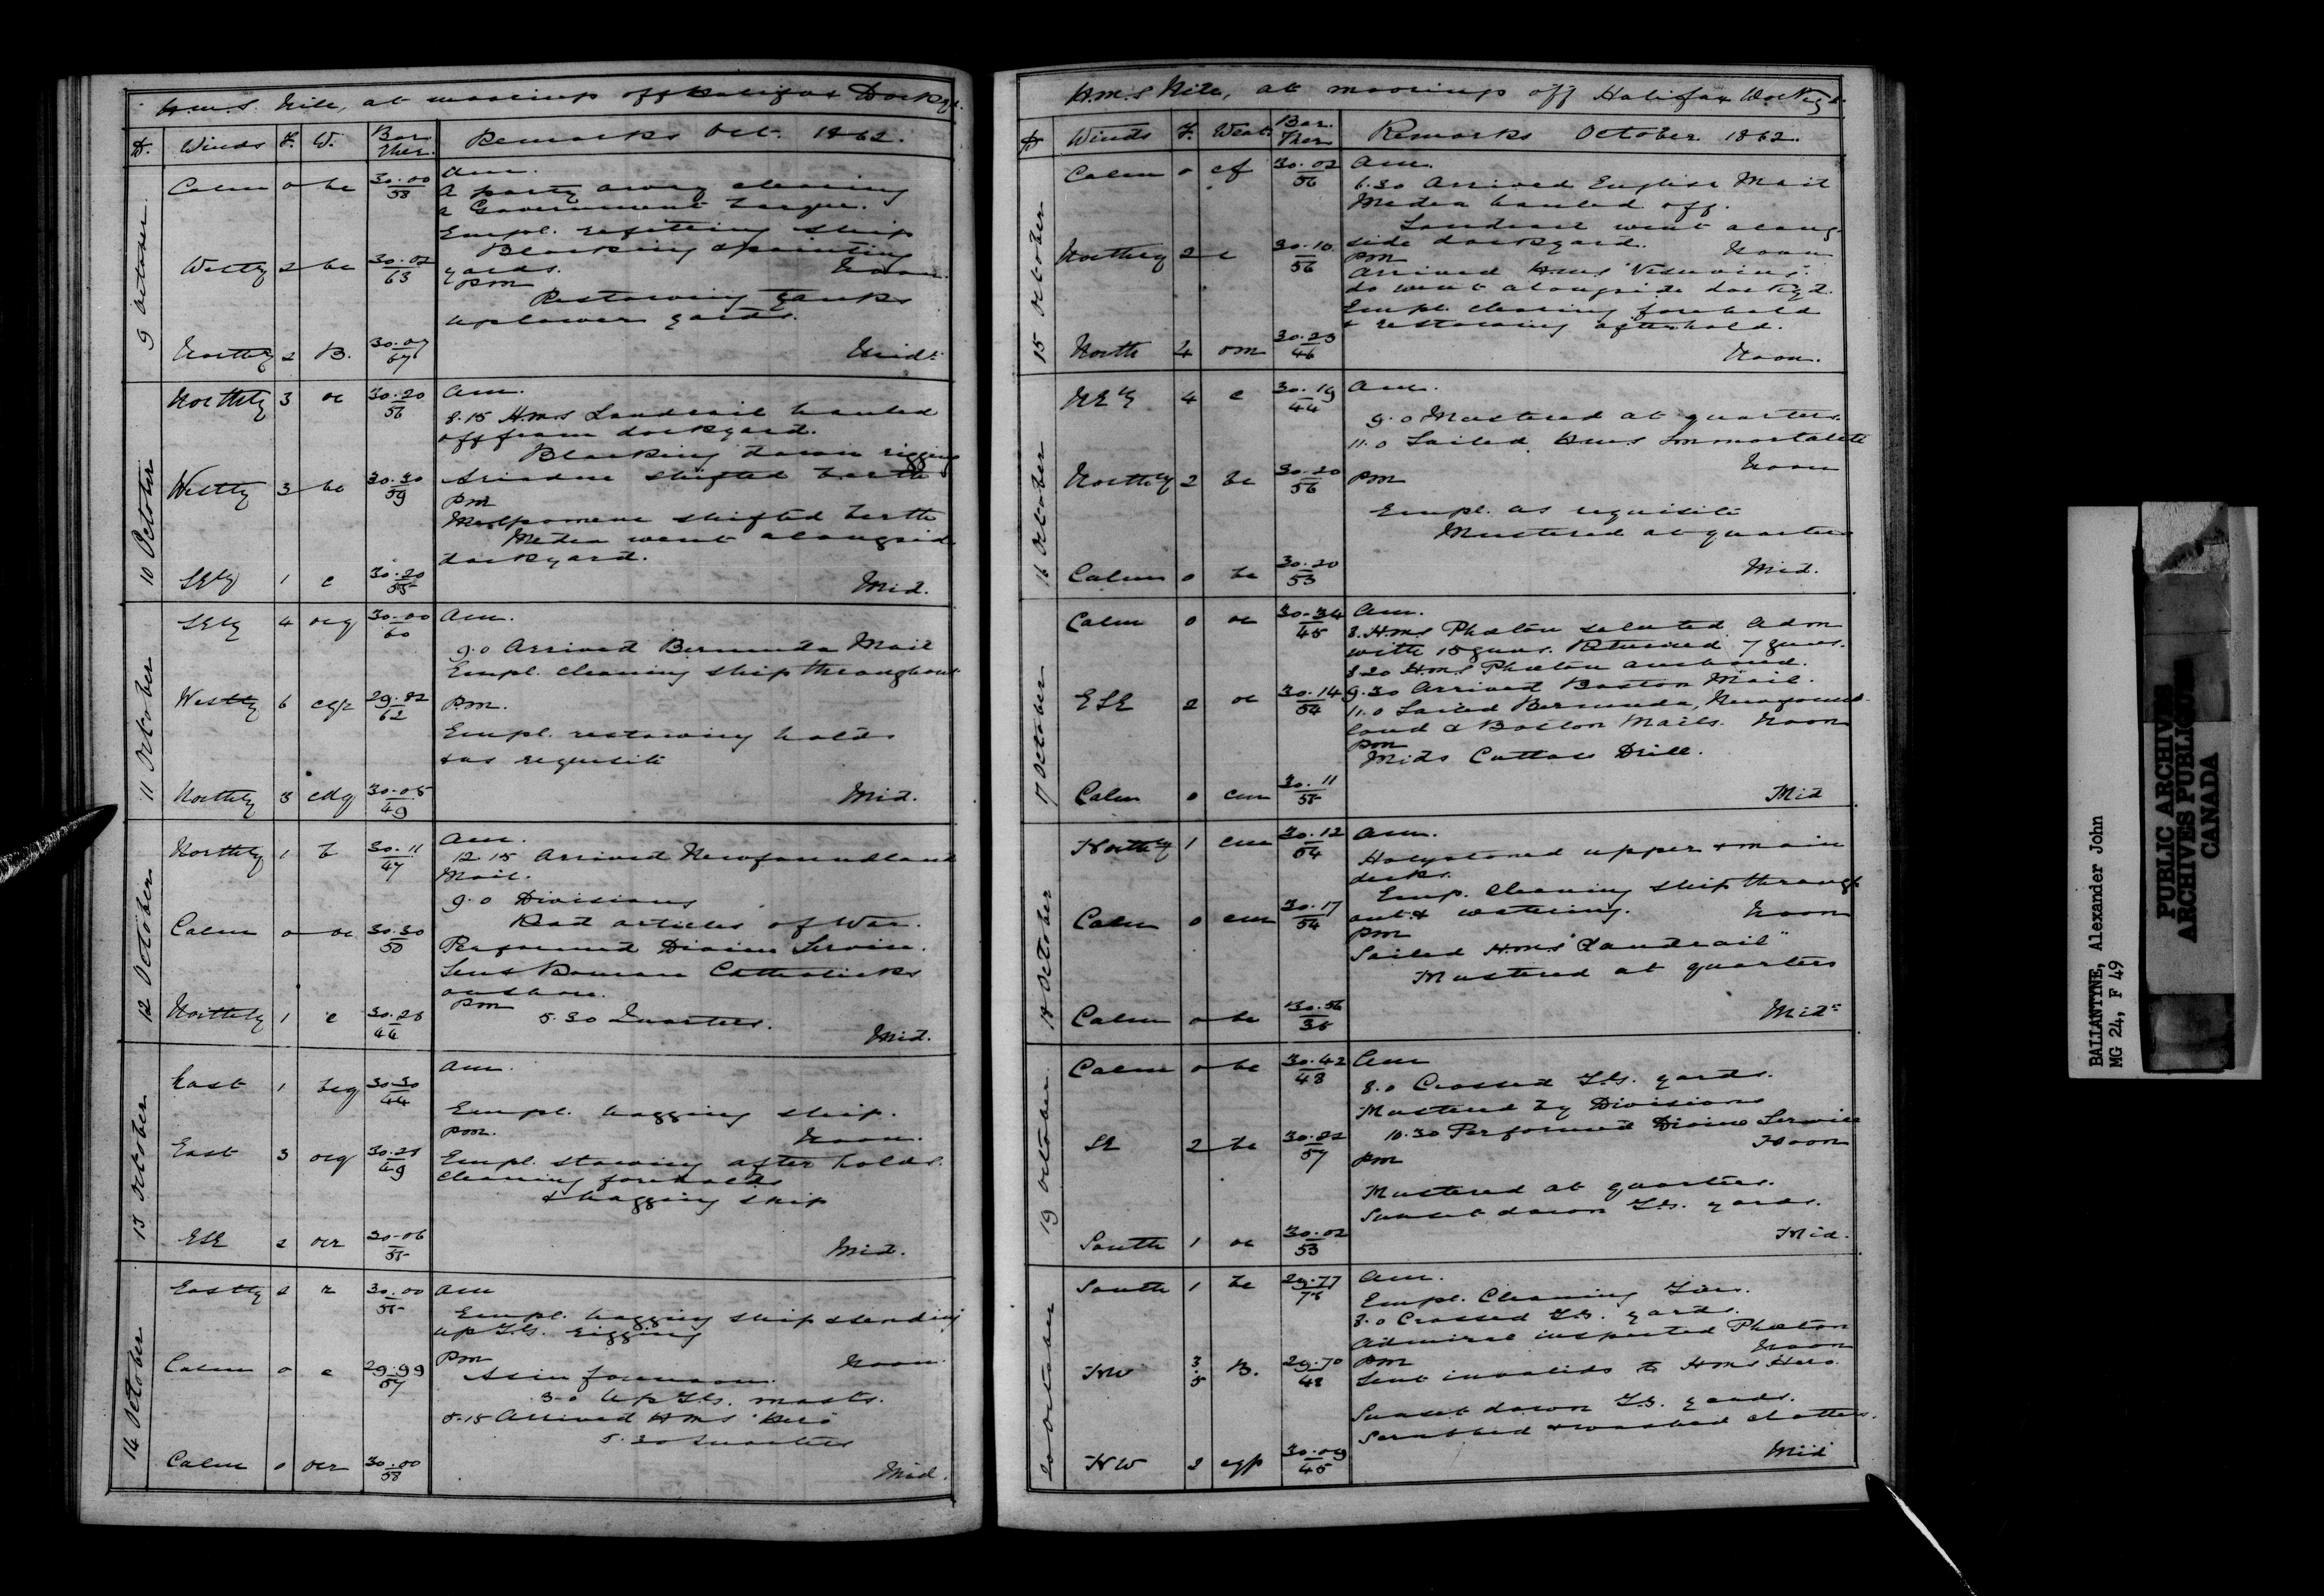 H.M.S. Nile, at moorings off Halifax Dockyd.
D. Winds F. W. Bar. Ther. Remarks Oct. 1862.
9 October
Calm 0 bc 30.00 / 58 Am.
A party away clearing
a Government barque.
Empl. refitting ship
Blacking & painting
Westly 2 bc 30.02 / 63 yards. Noon.
pm
Restowing tanks
up lower yards.
Northly 2 B. 30.07 / 67 Midt.
10 October
Northly 3 oc 30.20 / 56 Am.
8.15 H.M.S Landrail hauled
off from dockyard.
Blacking down rigging
Westly 3 bc 30.30 / 59 Ariadne shifted berth
pm
Melpomene shifted berth
Medea went alongside
dockyard.
SEly 1 c 30.20 / 55 Mid.
11 October
SEly 4 ocg 30.00 / 60 Am.
9.0 Arrived Bermuda Mail
Empl. cleaning ship throughout
Westly 6 cgr 29.82 / 62 Pm.
Empl. restowing holds
& as requisite
Northly 3 30.05 / 49 Mid.
12 October
Northly 1 b 30.11 / 47 Am.
12.15 Arrived Newfoundland
Mail.
9.0 Divisions
Read articles of War.
Calm 0 oc 30.30 / 50 Performed Divine Service.
Sent Roman Catholicks
on shore.
pm
Northly 1 c 30.28 / 46 5.30 Quarters.
Mid.
13 October
East 1 bcg 30.30 / 44 Am.
Empl. hogging ship.
pm. Noon.
East 3 ocg 30.28 / 49 Empl. stowing after holds.
cleaning foreholds
& hogging ship
ESE 2 ocr 30.06 / 55 Mid.
14 October
Eastly 2 r 30.00 / 55 Am
Empl. hogging ship & sending
up T.G. rigging
Calm 0 c 29.99 / 57 pm Noon.
As in forenoon.
3.0 Up T.G. masts.
5.15 Arrived HMS "Hero"
5.30 Quarters
Calm 0 ocr 30.00 / 58 Mid.
H.M.S Nile, at moorings off Halifax Dockyd.
D Winds F. Weat. Bar. Ther Remarks October 1862.
15 October
Calm 0 cf 30.02 / 56 Am.
6.30 Arrived English Mail
Medea hauled off.
Landrail went along-
side dockyard. Noon
Northly 2 c 30.10 / 56 pm
Arrived H.M.S "Vesuvius"
do went alongside dockyd.
Empl. clearing forehold
& restowing afterhold.
North 4 om 30.23 / 46 Noon.
16 October
NEly 4 c 30.19 / 44 Am.
9.0 Mustered at quarters.
11.0 Sailed H.M.S Immortalité
Noon
Northly 2 bc 30.20 / 56 pm
Empl. as requisite
Mustered at quarters
Calm 0 bc 30.20 / 53 Mid.
17 October
Calm 0 oc 30.34 / 45 Am.
8. H.M.S Phaeton saluted Adm
with 15 guns. Returned 7 guns.
8.20 H.M.S Phaeton anchored.
ESE 2 oc 30.14 / 54 9.30 Arrived Boston Mail.
11.0 Sailed Bermuda, Newfound-
land & Boston Mails. Noon
pm
Mids Cutlass Drill.
Calm 0 cm 30.11 / 55 Mid
18 October
Northly 1 cm 30.12 / 54 Am.
Holystoned upper & main
decks.
Emp. cleaning ship through-
Calm 0 cm 30.17 / 54 out & watering. Noon
pm
Sailed H.M.S "Landrail"
Mustered at quarters
Calm 0 bc 30.56 / 35 Midt
19 October
Calm 0 bc 30.42 / 48 Am
8.0 Crossed T.G. yards.
Mustered by Divisions
SE 2 bc 30.22 / 57 10.30 Performed Divine Service
Noon
pm
Mustered at quarters.
Sunset down T.G. yards.
South 1 oc 30.02 / 53 Mid.
20 October
South 1 bc 29.77 / Am.
Empl. Cleaning
8.0 Crossed T.G. yards.
Admiral inspected Phaeton
Noon
NW 3.5 B. 29.70 / 48 pm
Sent invalids to H.M.S Hero.
Sunset down T.G. yards.
Scrubbed & washed clothes.
NW 2 cgp 30.09 / 45 Mid
BALLANTYNE, Alexander John
MG 24, F 49
PUBLIC ARCHIVES
ARCHIVES PUBLIQUES
CANADA